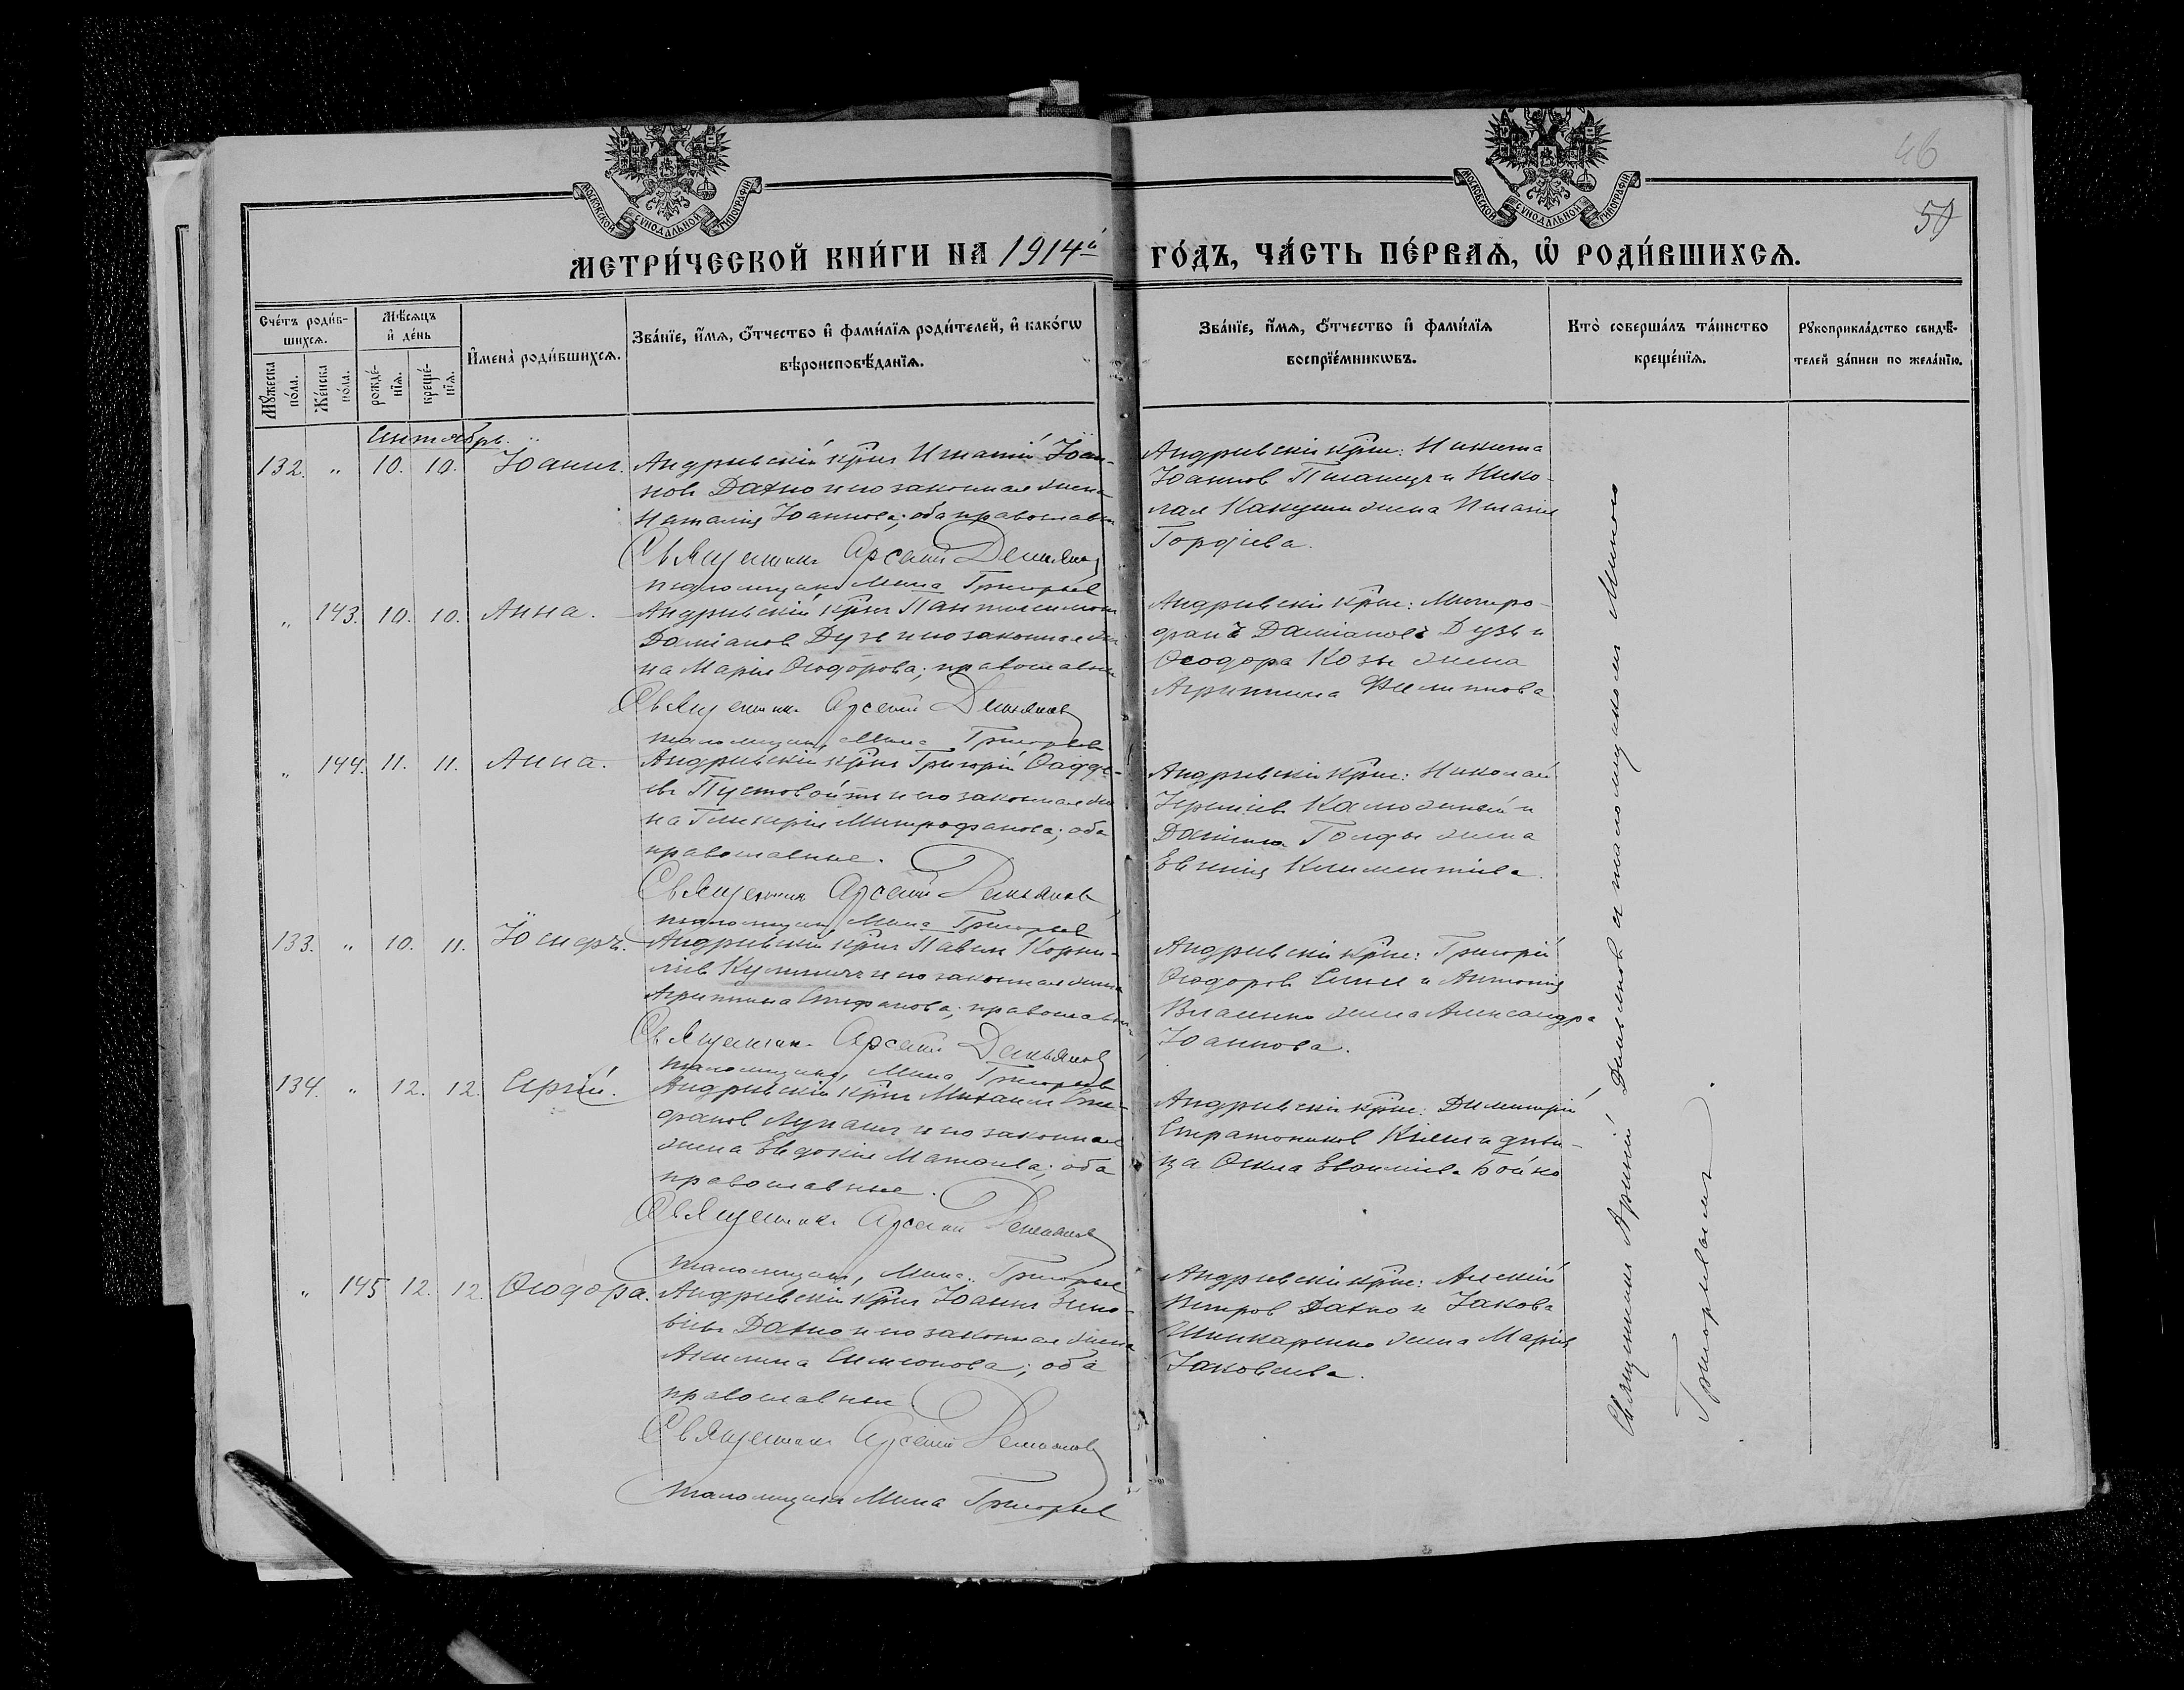 46
59
МОСКОВСКОЙ СѴНОДАЛЬНОЙ ТИПОГРАФІИ
МОСКОВСКОЙ СѴНОДАЛЬНОЙ ТИПОГРАФІИ
МЕТРИ́ЧЕСКОЙ КНИ́ГИ НА 1914й ГО́ДЪ, ЧА́СТЬ ПЕ́РВАѦ, Ѡ҆ РОДИ́ВШИХСѦ.
Сче́тъ роди́в-
шихсѧ.
Мѣ́сѧцъ
и҆ де́нь
Мꙋ́жеска
по́ла.
Же́нска
по́ла.
рожде́-
нїѧ.
креще́-
нїѧ.
И҆мена̀ роди́вшихсѧ.
Зва́нїе, и҆́мѧ, ѻ҆́тчество и҆ фами́лїѧ роди́телей, и҆ како́гѡ
вѣроисповѣ́данїѧ.
Зва́нїе, и҆́мѧ, ѻ҆́тчество и҆ фами́лїѧ
воспрїе́мникѡвъ.
Кто̀ соверша́лъ та́инство
креще́нїѧ.
Рꙋкоприкла́дство свидѣ́-
телей за́писи по жела́нїю.
Сентябрь.
132. " 10. 10. Іоаннъ. Андреевскій кр̃нъ Игнатій Іоан-
новъ Дахно и его законная жена
Наталія Іоаннова; оба православн
Священникъ Арсеній Демьяновъ
псаломщикъ Мина Григорьев
Андреевскіе кр̃не: Никита
Іоаннов и Нико-
лая жена
" 143. 10. 10. Анна. Андреевскій кр̃нъ Пантелеимонъ
Даміанов Дузь и его законная же
на Марія Ѳеодорова; православны
Священникъ Арсеній Демьяновъ
псаломщикъ Мина Григорьев
Андреевскіе кр̃не: Митро-
фанъ Даміановъ Дузь и
Ѳеодора Козы жена
Агриппина Филиппова
" 144. 11. 11. Анна. Андреевскій кр̃нъ Григорій Ѳадде-
евъ Пустовойтъ и его законная же
на Гликерія Митрофанова; оба
православные.
Священникъ Арсеній Демьяновъ
псаломщикъ, Мина Григорьев
Андреевскіе кр̃не: Николай
и
жена
Евгенія Климентіева.
133. " 10. 11. Іосифъ. Андреевскій кр̃нъ Павелъ Корни-
ліев и его законная жена
Агриппина Стефанова; православны
Священникъ Арсеній Демьяновъ
псаломщикъ, Мина Григорьев
Андреевскіе кр̃не: Григорій
Ѳеодоров и Антонія
Власенко жена Александра
Іоаннова.
134. " 12. 12. Сергій. Андреевскій кр̃нъ Михаилъ Сте-
фанов и его законная
жена Евдокія Матѳеева; оба
православные.
Священникъ Арсеній Демьяновъ
псаломщикъ, Мина Григорьев
Андреевскіе кр̃не: Димитрій
Стратоников и дѣви-
ца Ѳекла Евѳиміева Бойко
" 145 12. 12. Ѳеодора. Андреевскій кр̃нъ Іоаннъ Зино-
віевъ Дахно и его законная жена
Акилина Симеонова; оба
православные
Священникъ Арсеній Демьяновъ
псаломщикъ Мина Григорьев
Андреевскіе кр̃не: Алексій
Петров Дахно и Іакова
Шинкаренко жена Марія
Іаковлева.
Священникъ Арсеній Демьянов съ псаломщикомъ Миною
Григорьевымъ.